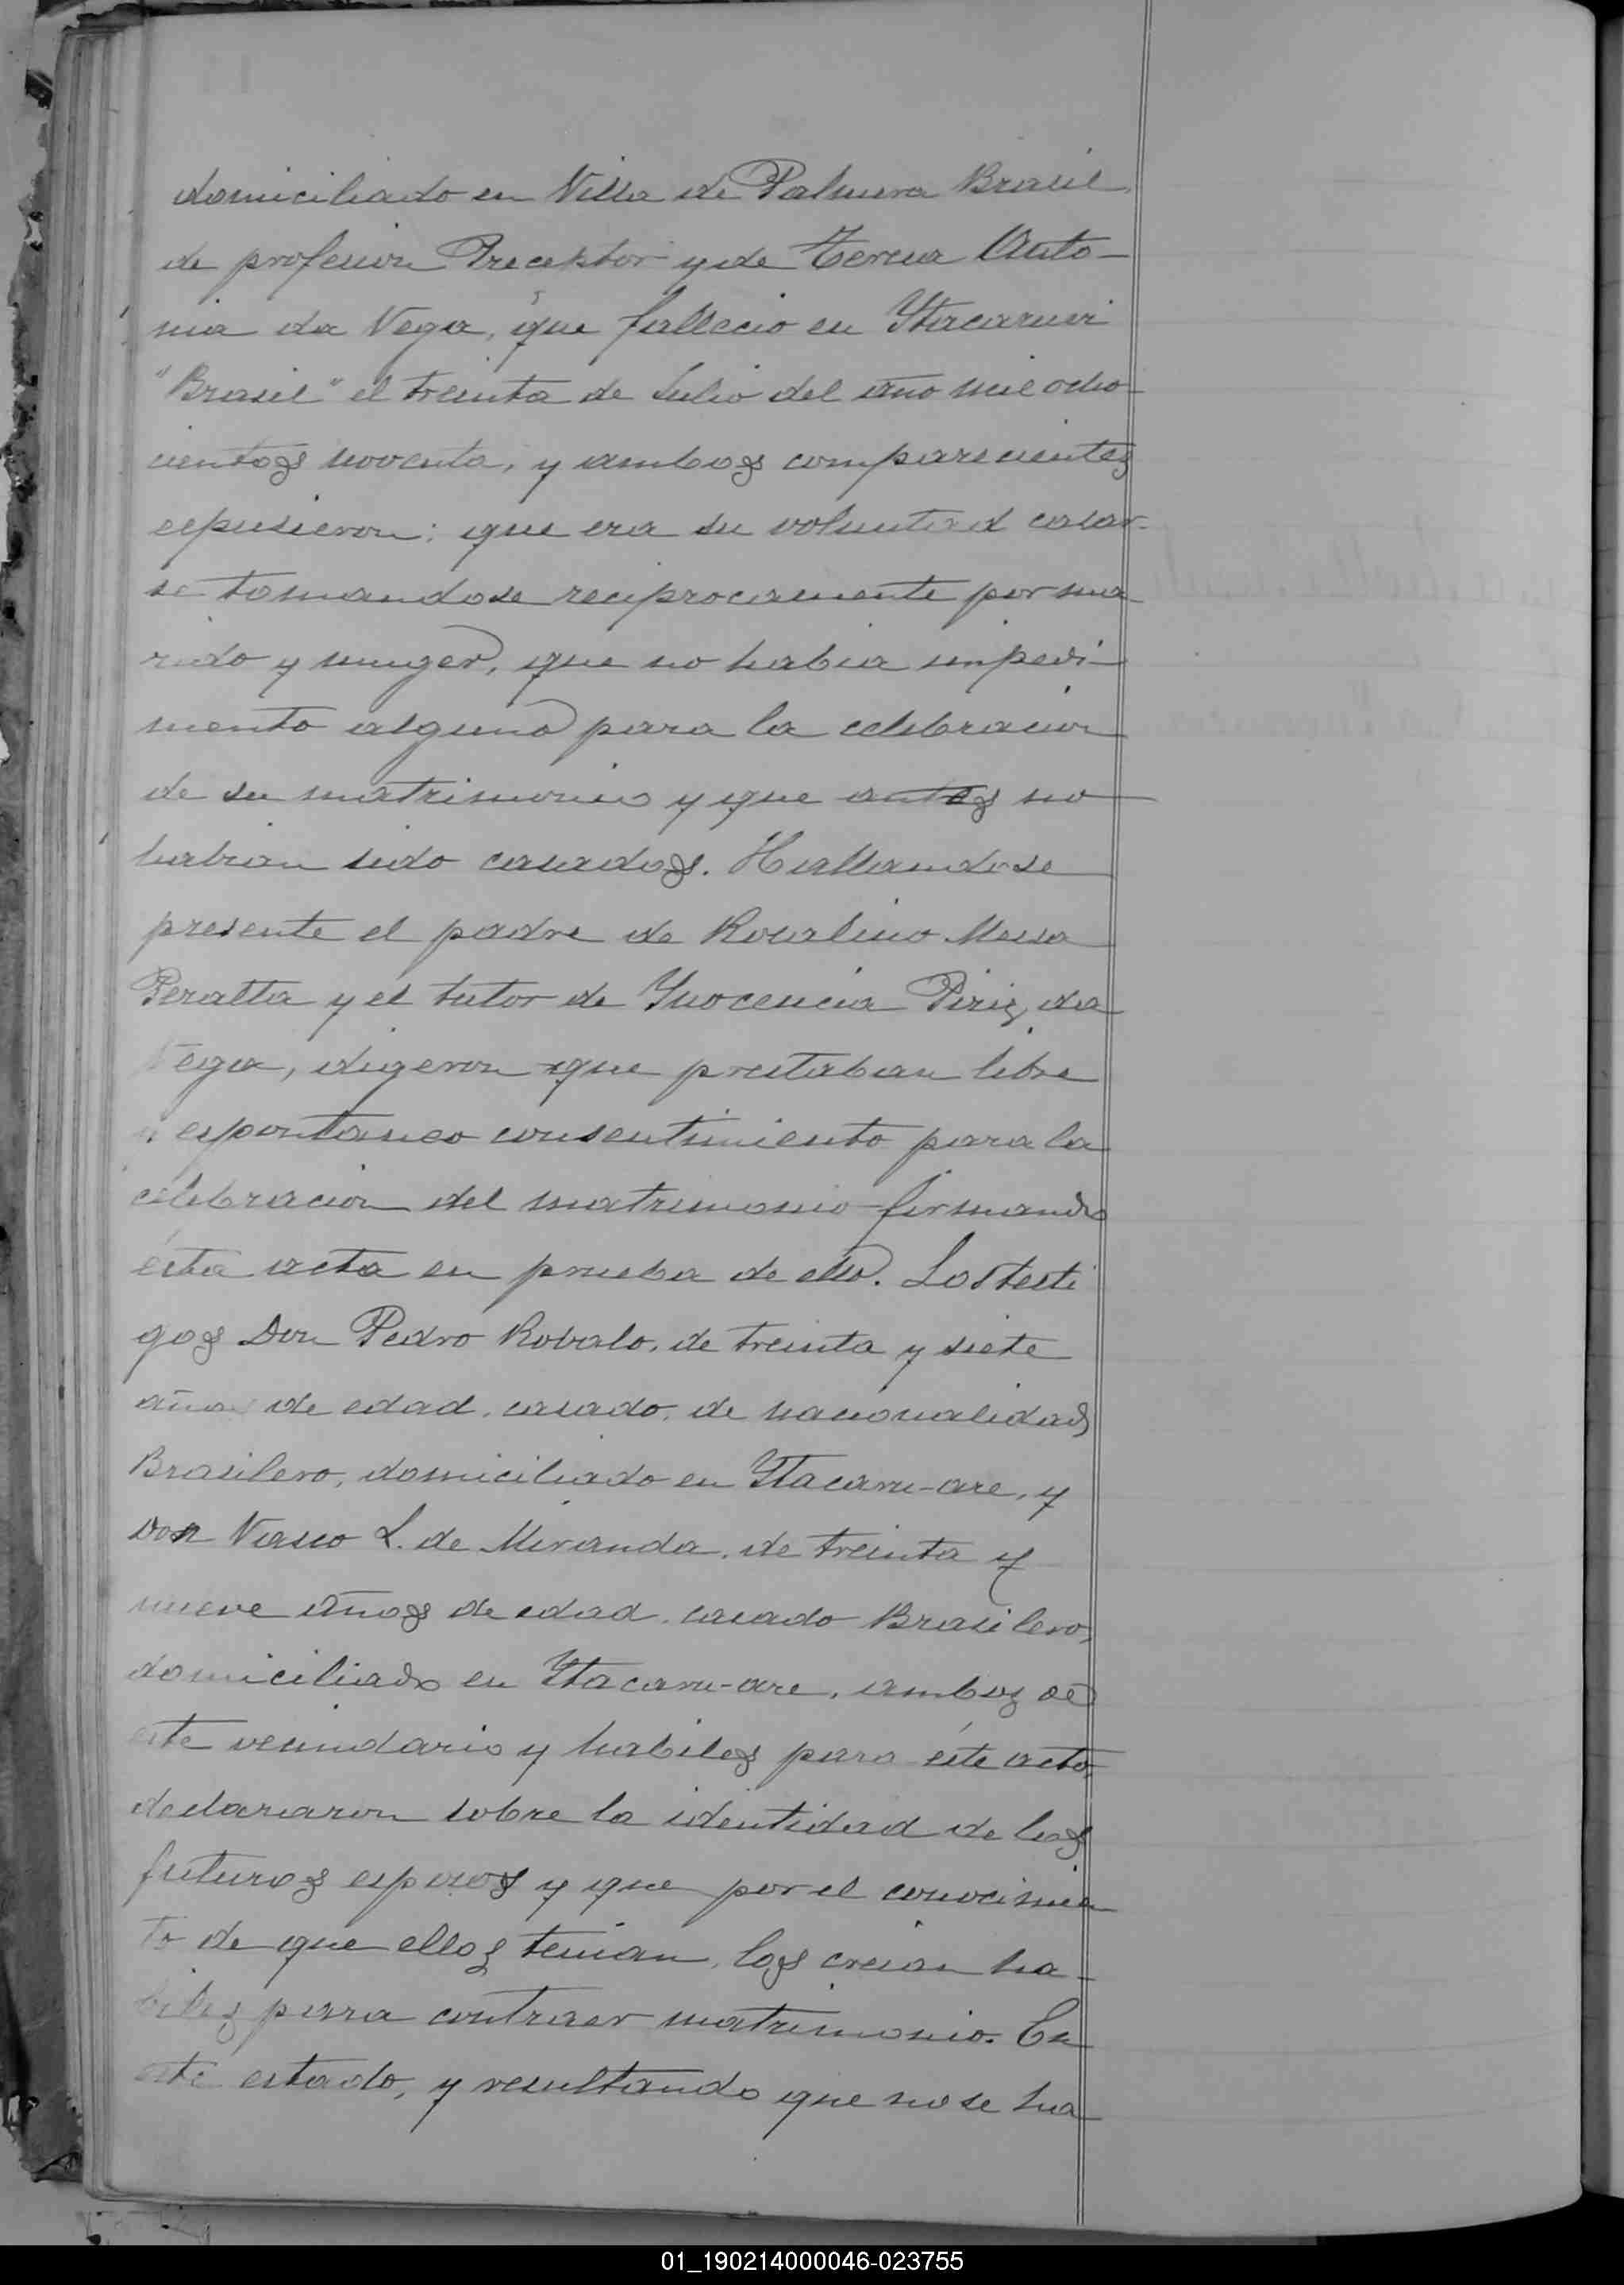 domiciliado en Villa de Palmera Brasil,
de profesion Preceptor y de Teresa Anto-
nia da Vega, que fallecio en Ytacaruvi
"Brasil" el treinta de Julio del año mil ocho-
cientos noventa, y ambos comparecientes
expusieron: que era su voluntad casar-
se tomandose reciprocamente por ma-
rido y muger, que no habia impedi-
mento alguno para la celebracion
de su matrimonio y que antes no
habian sido casados. Hallandose
presente el padre de Rosalino Meza
Peralta y el tutor de Ynocencia Piriz da
Vega, digeron que prestaban libre
y espontaneo consentimiento para la
celebracion del matrimonio firmando
ésta acta en prueba de ello. Los testi
gos Don Pedro Robalo, de treinta y siete
años de edad, casado, de nacionalidad
Brasilero, domiciliado en Ytacaru-are, y
Don Vasco L. de Miranda, de treinta y
nueve años de edad, casado Brasilero,
domiciliado en Ytacaru-are, ambos de
este vecindario y habiles para éste acto,
declararon sobre la identidad de los
futuros esposos y que por el conocimien
to de que ellos tenian, los creian ha-
biles para contraer matrimonio. En
este estado, y resultando que no se ha-
01_190214000046-023755